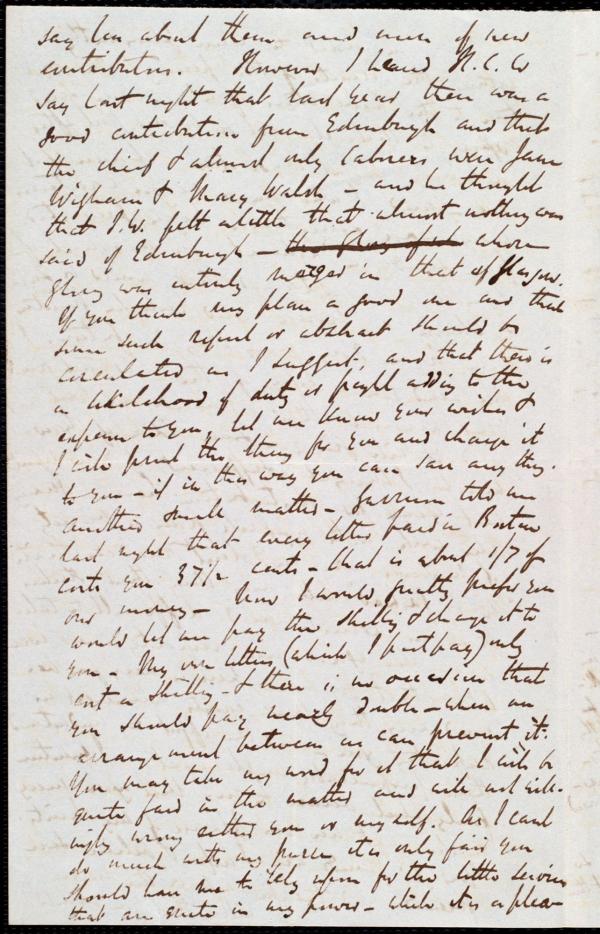 say less about them and more of new
contributors. However I heard H. C. W
say last night that last year there was a
good contribution from Edinburgh and that
the chief & almost only laborers were Jane
Wigham & Mary Walsh – and he thought
that J.W. felt a little that almost nothing was
said of Edinburgh – the glory of wh whose
glory was entirely merged in that of Glasgow.
If you think my plan a good one and that
some such report or abstract should be
circulated as I suggest, and that there is
a likelihood of duty or freight adding to the
expense to you, let me know your wishes &
I will print the thing for you and charge it
to you – if in this way you can save any thing.
Another small matter – Garrison told me
last night that every letter paid in Boston
costs you 37½ cents – that is about 1/7 of
our money – Now I would greatly prefer you
would let me pay the shilling & charge it to
you – My own letters (which I postpay) only
cost a shilling – & there is no occasion that
you should pay nearly double – when an
arrangement between us can prevent it.
You may take my word for it that I will be
quite fair in the matter and will not will-
ingly wrong either you or myself. As I cant
do much with my purse it is only fair you
should have me to rely upon for the little services
that are quite in my power – which it is a plea-